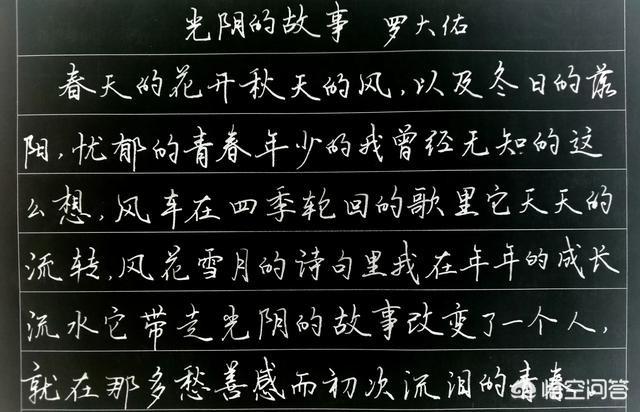 光阴的故事 罗大佑
春天的花开秋天的风,以及冬日的落
阳,忧郁的青春年少的我曾经无知的这
么想,风车在四季轮回的歌里它天天的
流转,风花雪月的诗句里我在年年的成长
流水它带走光阴的故事改变了一个人,
就在那多愁善感而初次流泪的青春
悟空问答